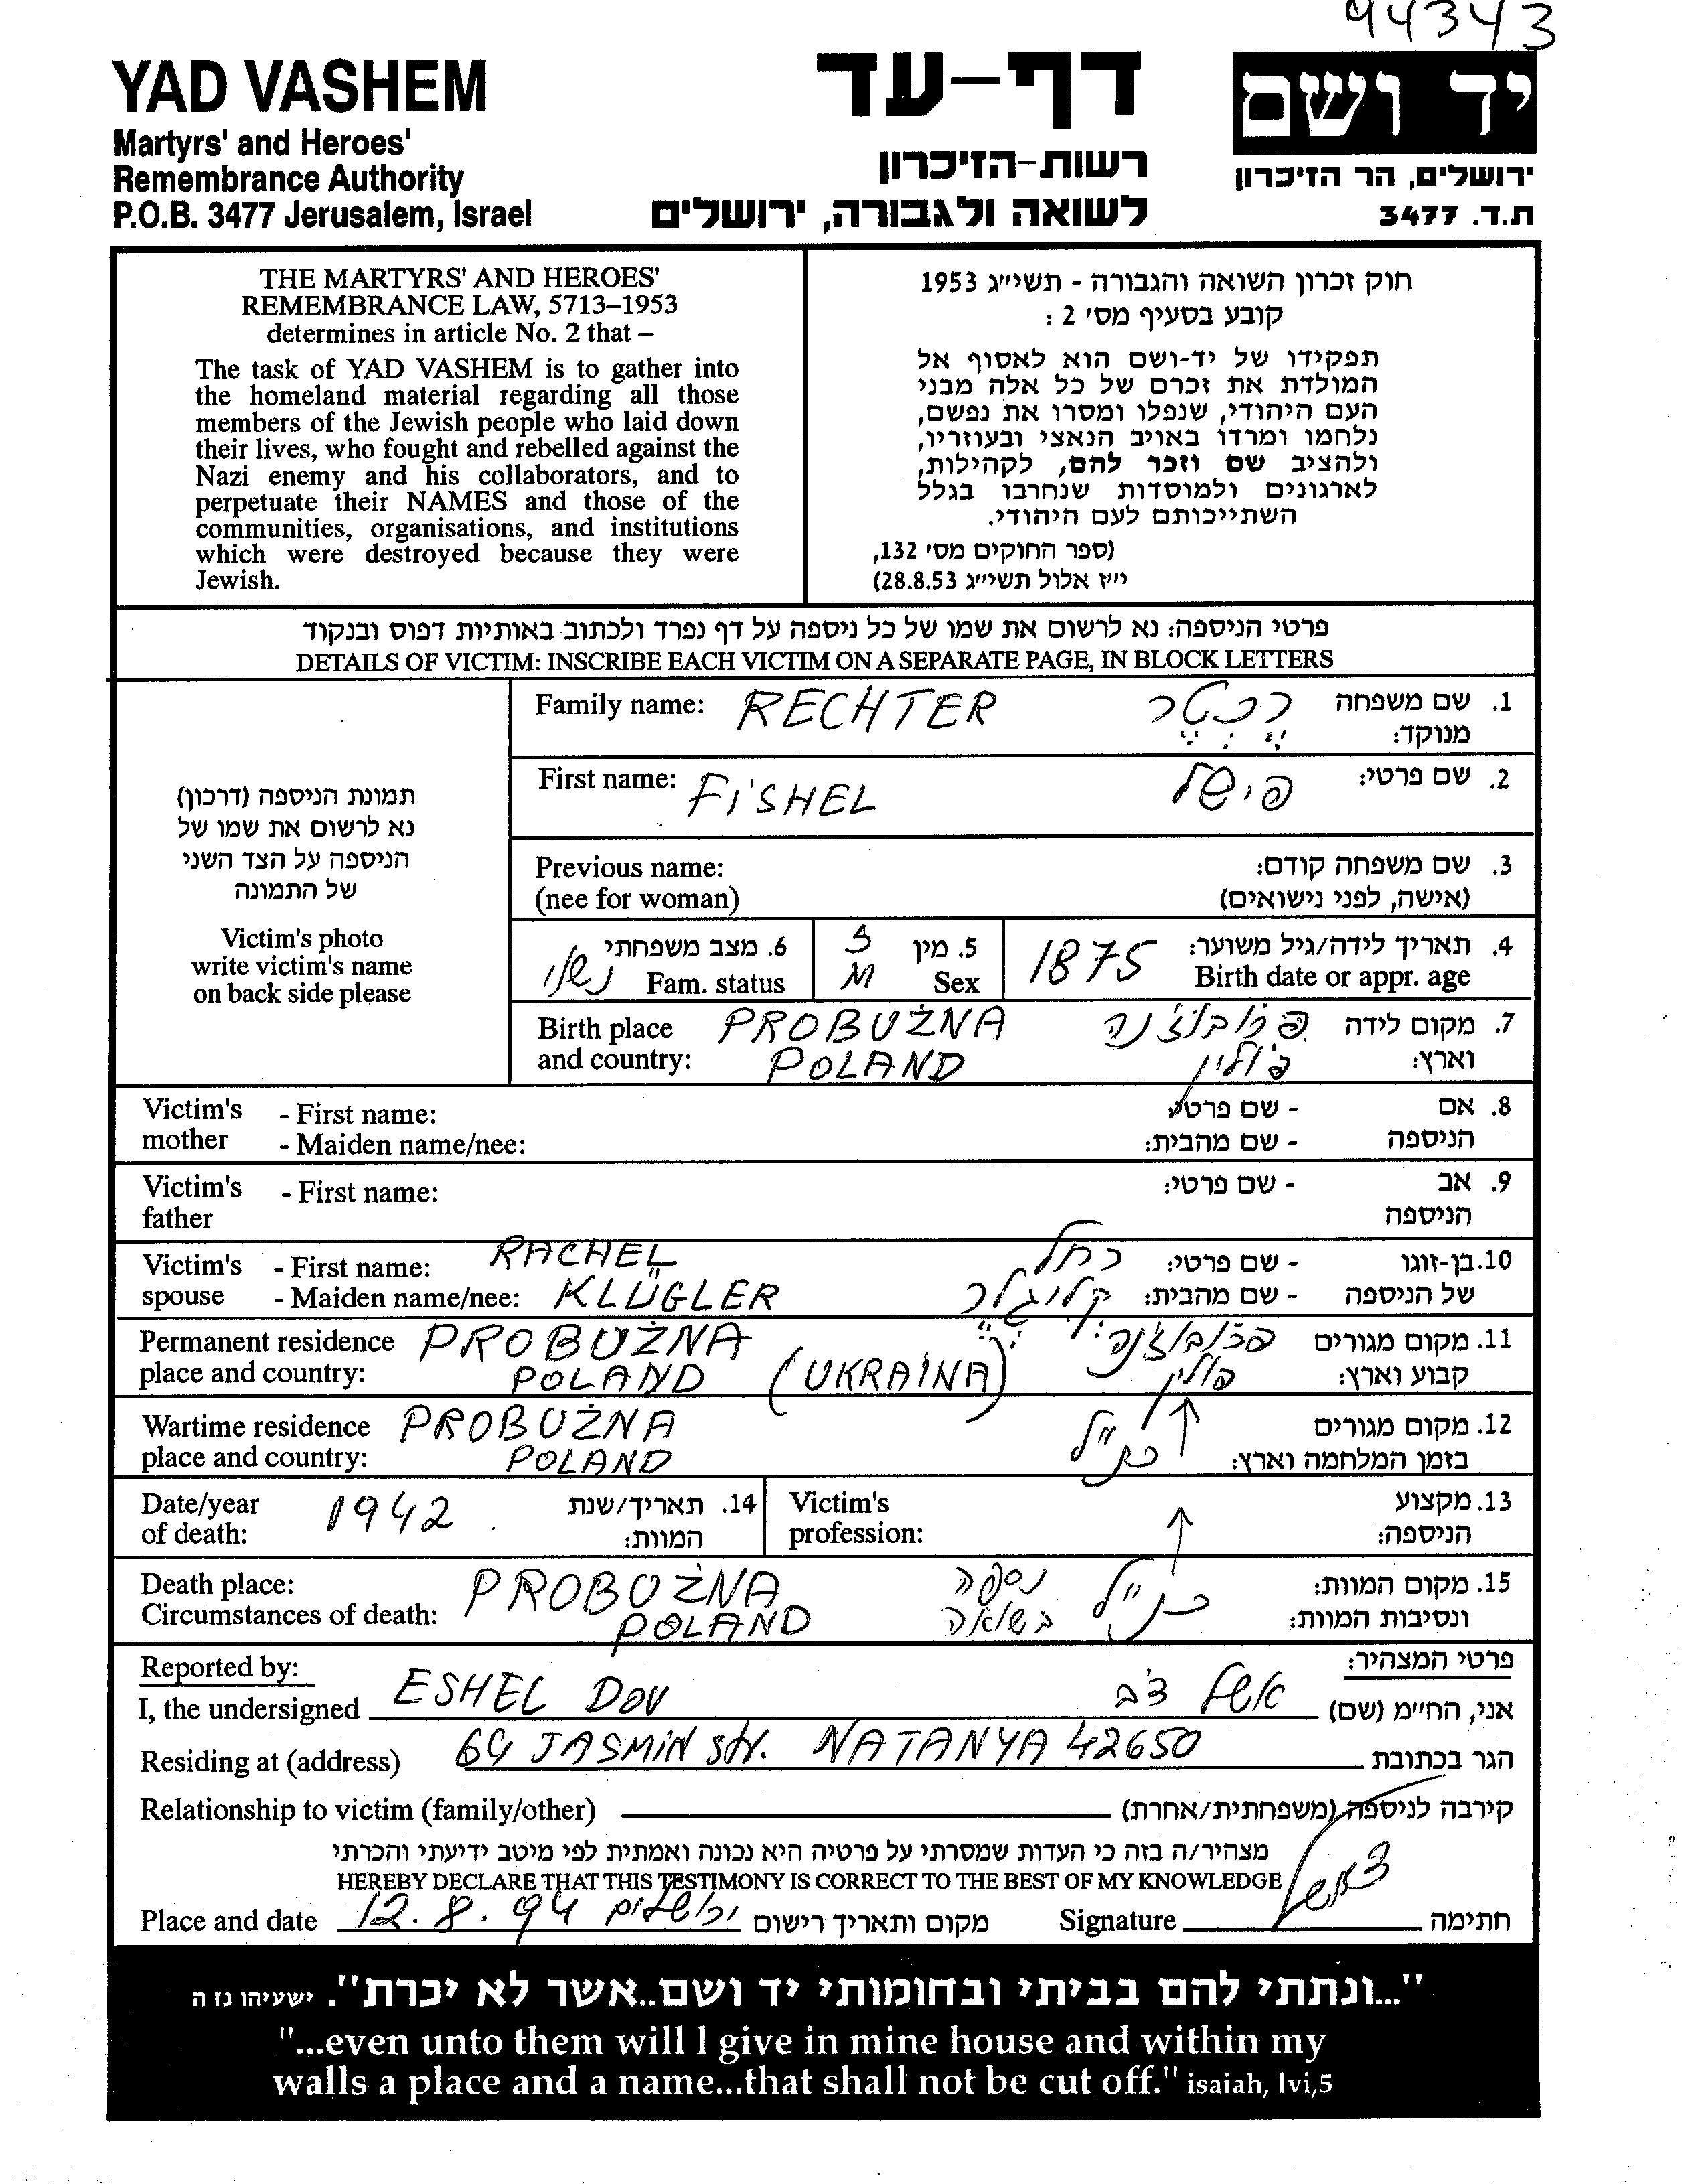 94343
YAD VASHEM
Martyrs' and Heroes'
Remembrance Authority
P.O.B. 3477 Jerusalem, Israel
דף-עד
רשות-הזיכרון
לשואה ולגבורה, ירושלים
יד ושם
ירושלים, הר הזיכרון
ת.ד. 3477
THE MARTYRS' AND HEROES'
REMEMBRANCE LAW, 5713–1953
determines in article No. 2 that –
The task of YAD VASHEM is to gather into
the homeland material regarding all those
members of the Jewish people who laid down
their lives, who fought and rebelled against the
Nazi enemy and his collaborators, and to
perpetuate their NAMES and those of the
communities, organisations, and institutions
which were destroyed because they were
Jewish.
חוק זכרון השואה והגבורה - תשי״ג 1953
קובע בסעיף מס' 2 :
תפקידו של יד-ושם הוא לאסוף אל
המולדת את זכרם של כל אלה מבני
העם היהודי, שנפלו ומסרו את נפשם,
נלחמו ומרדו באויב הנאצי ובעוזריו,
ולהציב שם וזכר להם, לקהילות,
לארגונים ולמוסדות שנחרבו בגלל
השתייכותם לעם היהודי.
(ספר החוקים מס' 132,
י״ז אלול תשי״ג 28.8.53)
פרטי הניספה: נא לרשום את שמו של כל ניספה על דף נפרד ולכתוב באותיות דפוס ובנקוד
DETAILS OF VICTIM: INSCRIBE EACH VICTIM ON A SEPARATE PAGE, IN BLOCK LETTERS
תמונת הניספה (דרכון)
נא לרשום את שמו של
הניספה על הצד השני
של התמונה
Victim's photo
write victim's name
on back side please
Family name: RECHTER רֶכְטֶר 1. שם משפחה
מנוקד:
First name: FISHEL פישל 2. שם פרטי:
Previous name: 3. שם משפחה קודם:
(nee for woman) (אישה, לפני נישואים)
6. מצב משפחתי 5. מין ז 4. תאריך לידה/גיל משוער:
נשוי Fam. status M Sex 1875 Birth date or appr. age
Birth place PROBUŻNA פרובוזנה 7. מקום לידה
and country: POLAND פולין וארץ:
Victim's - First name: - שם פרטי 8. אם
mother - Maiden name/nee: - שם מהבית: הניספה
Victim's - First name: - שם פרטי: 9. אב
father הניספה
Victim's - First name: RACHEL רחל - שם פרטי: 10. בן-זוגו
spouse - Maiden name/nee: KLÜGLER קליגלר - שם מהבית: של הניספה
Permanent residence PROBUŻNA פרובוזנה 11. מקום מגורים
place and country: POLAND (UKRAINA) פולין קבוע וארץ:
Wartime residence PROBUŻNA כנ״ל 12. מקום מגורים
place and country: POLAND בזמן המלחמה וארץ:
Date/year 1942 14. תאריך/שנת Victim's 13. מקצוע
of death: המוות: profession: הניספה:
Death place: PROBUŻNA נספה כנ״ל 15. מקום המוות:
Circumstances of death: POLAND בשואה ונסיבות המוות:
Reported by: פרטי המצהיר:
I, the undersigned ESHEL DOV אשל דב אני, החי״מ (שם)
Residing at (address) 64 JASMIN str. NATANYA 42650 הגר בכתובת
Relationship to victim (family/other) קירבה לניספה (משפחתית/אחרת)
מצהיר/ה בזה כי העדות שמסרתי על פרטיה היא נכונה ואמתית לפי מיטב ידיעתי והכרתי
HEREBY DECLARE THAT THIS TESTIMONY IS CORRECT TO THE BEST OF MY KNOWLEDGE
Place and date 12.8.94 ירושלים מקום ותאריך רישום Signature חתימה
"...ונתתי להם בביתי ובחומותי יד ושם..אשר לא יכרת". ישעיהו נז ה
"...even unto them will I give in mine house and within my
walls a place and a name...that shall not be cut off." isaiah, lvi,5